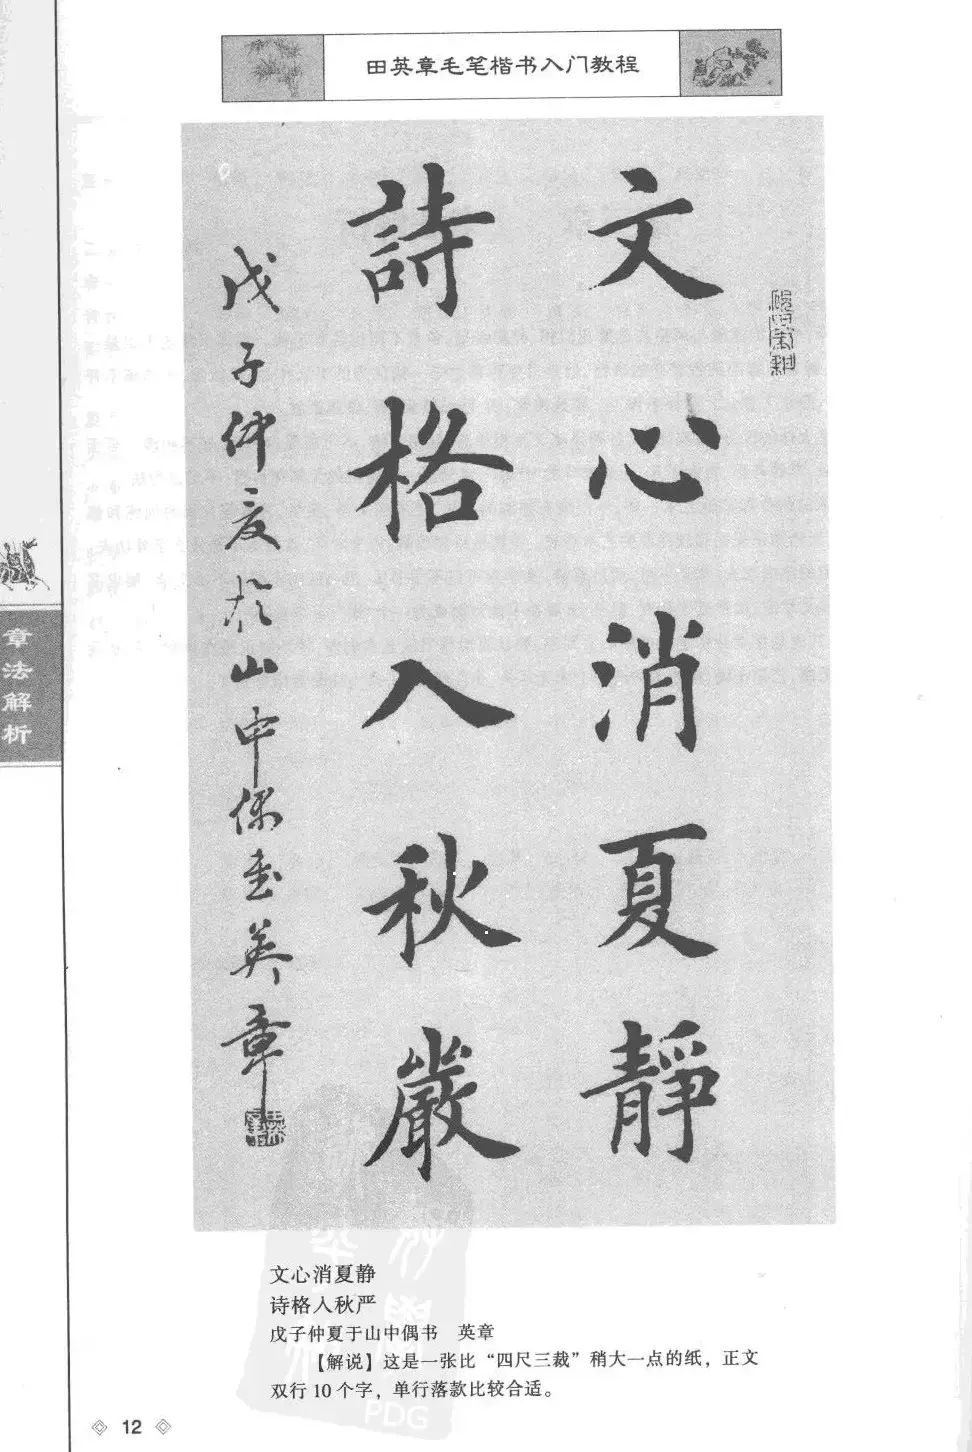 田英章毛笔楷书入门教程
文心消夏靜
詩格入秋嚴
戊子仲夏於山中偶書英章
章法解析
文心消夏静
诗格入秋严
戊子仲夏于山中偶书 英章
【解说】这是一张比“四尺三裁”稍大一点的纸，正文
双行10个字，单行落款比较合适。
12
PDG